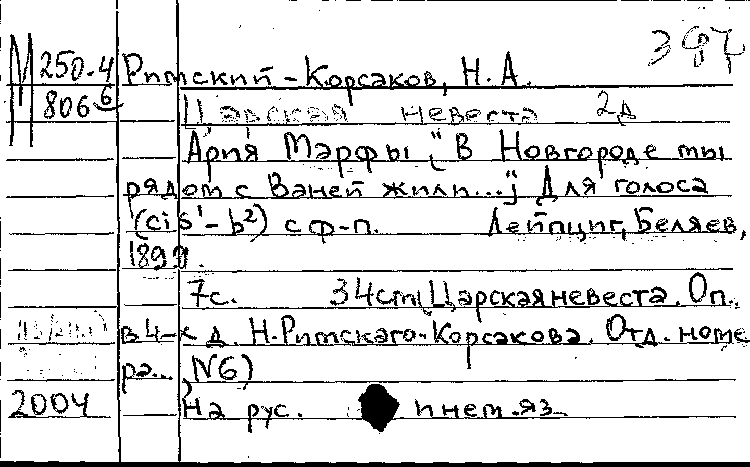 397
М 250.4 Римский-Корсаков, Н. А.
806 6
Царская невеста 2д
Ария Марфы („В Новгороде мы
рядом с Ваней жили...“) Для голоса
(cis¹-b²) с ф-п. Лейпциг, Беляев,
1899.
7с. 34cm (Царская невеста. Оп.
в 4-х д. Н. Римскаго-Корсакова. Отд. номе
ра..., N6)
2004 На рус. и нем. яз.